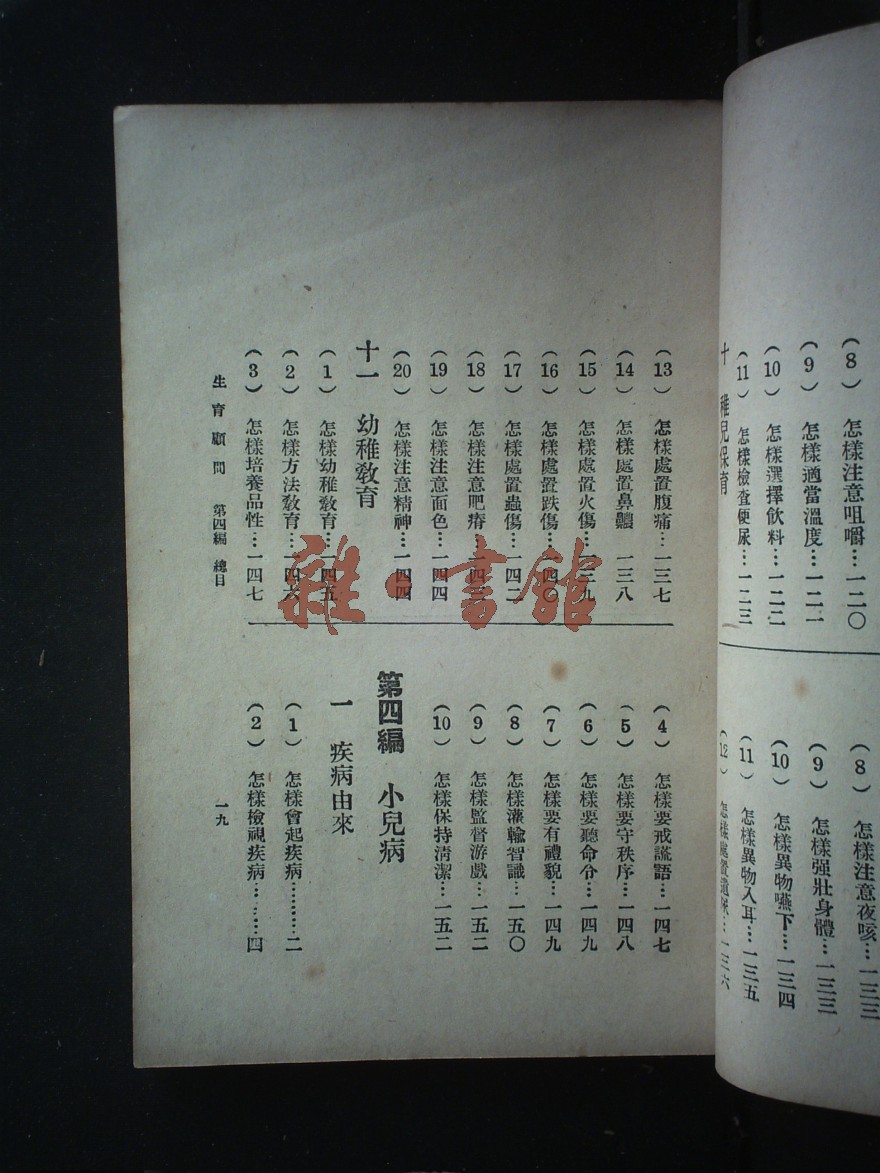 (8) 怎樣注意咀嚼…一二〇
(9) 怎樣適當溫度…一二一
(10) 怎樣選擇飲料…一二二
(11) 怎樣檢查便尿…一二三
十 稚兒保育
(8) 怎樣注意夜咳…一三三
(9) 怎樣强壯身體…一三三
(10) 怎樣異物嚥下…一三四
(11) 怎樣異物入耳…一三五
(12) 怎樣處置遺尿…一三六
(13) 怎樣處置腹痛…一三七
(14) 怎樣處置鼻衄 一三八
(15) 怎樣處置火傷…一三九
(16) 怎樣處置跌傷…一四〇
(17) 怎樣處置蟲傷…一四二
(18) 怎樣注意肥瘠…一四三
(19) 怎樣注意面色…一四四
(20) 怎樣注意精神…一四四
十一 幼稚敎育
(1) 怎樣幼稚敎育…一四五
(2) 怎樣方法敎育…一四六
(3) 怎樣培養品性…一四七
(4) 怎樣要戒謊語…一四七
(5) 怎樣要守秩序…一四八
(6) 怎樣要聽命令…一四九
(7) 怎樣要有禮貌…一四九
(8) 怎樣灌輸智識…一五〇
(9) 怎樣監督游戲…一五二
(10) 怎樣保持淸潔…一五二
第四編 小兒病
一 疾病由來
(1) 怎樣會起疾病………二
(2) 怎樣檢視疾病………四
生育顧問 第四編 總目
一九
雜書館